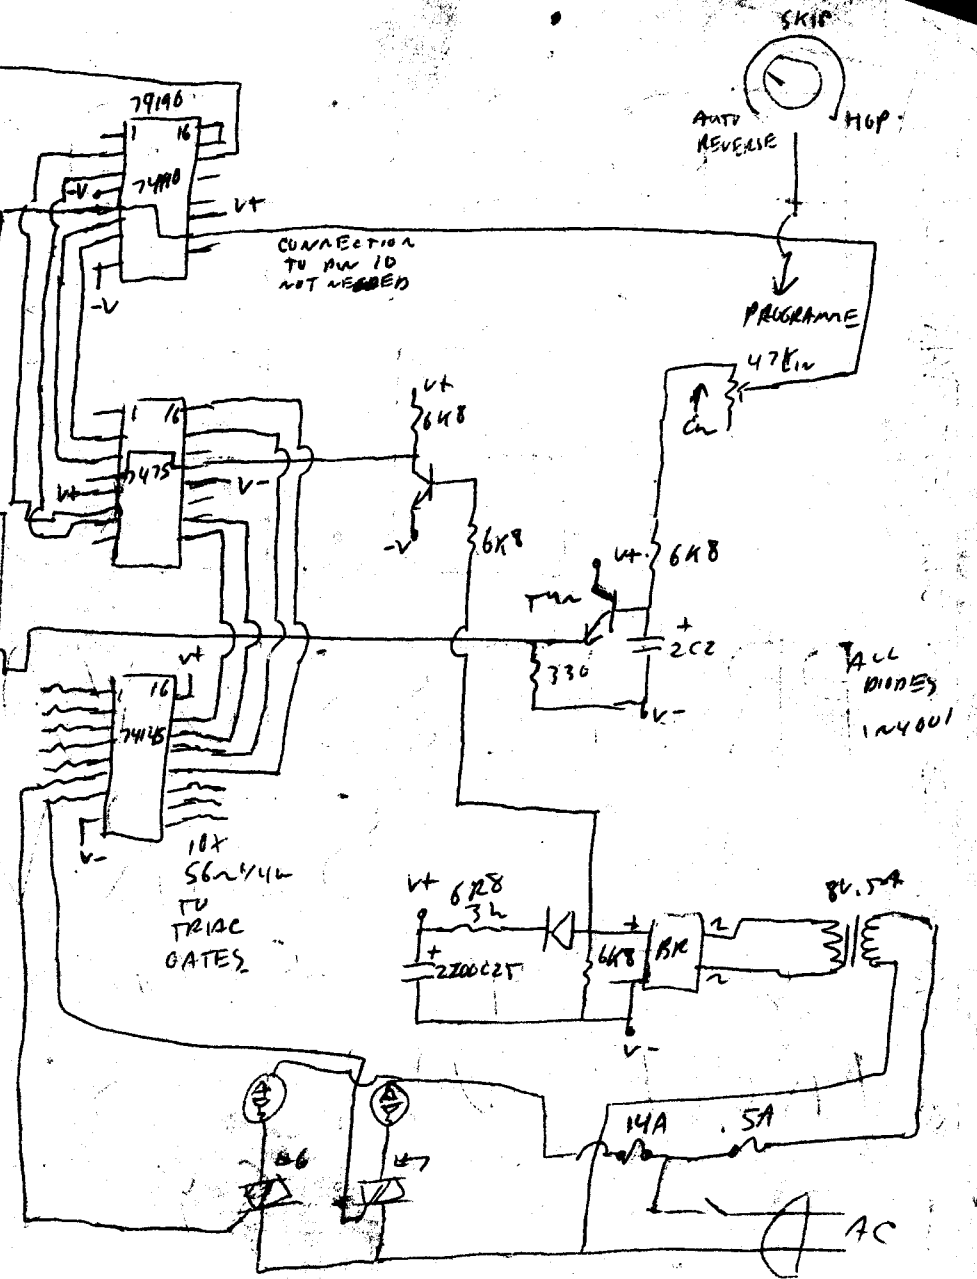 SKIP
AUTO
REVERSE
HOP
74190
1 16
74190
-V
V+
-V
CONNECTION
TO PIN 10
NOT NEEDED
PROGRAMME
47K LIN
V+
6K8
1 16
7475
V+
V-
-V
6K8
V+
6K8
+
2C2
330
V-
ALL
DIODES
1N4001
V+
1 16
74145
V-
10X
56Ω 1/4W
TO
TRIAC
GATES
V+
6R8
3W
+
2200C25
+
6K8
BR
~
~
V-
8V .5A
14A
.5A
#6
#7
AC